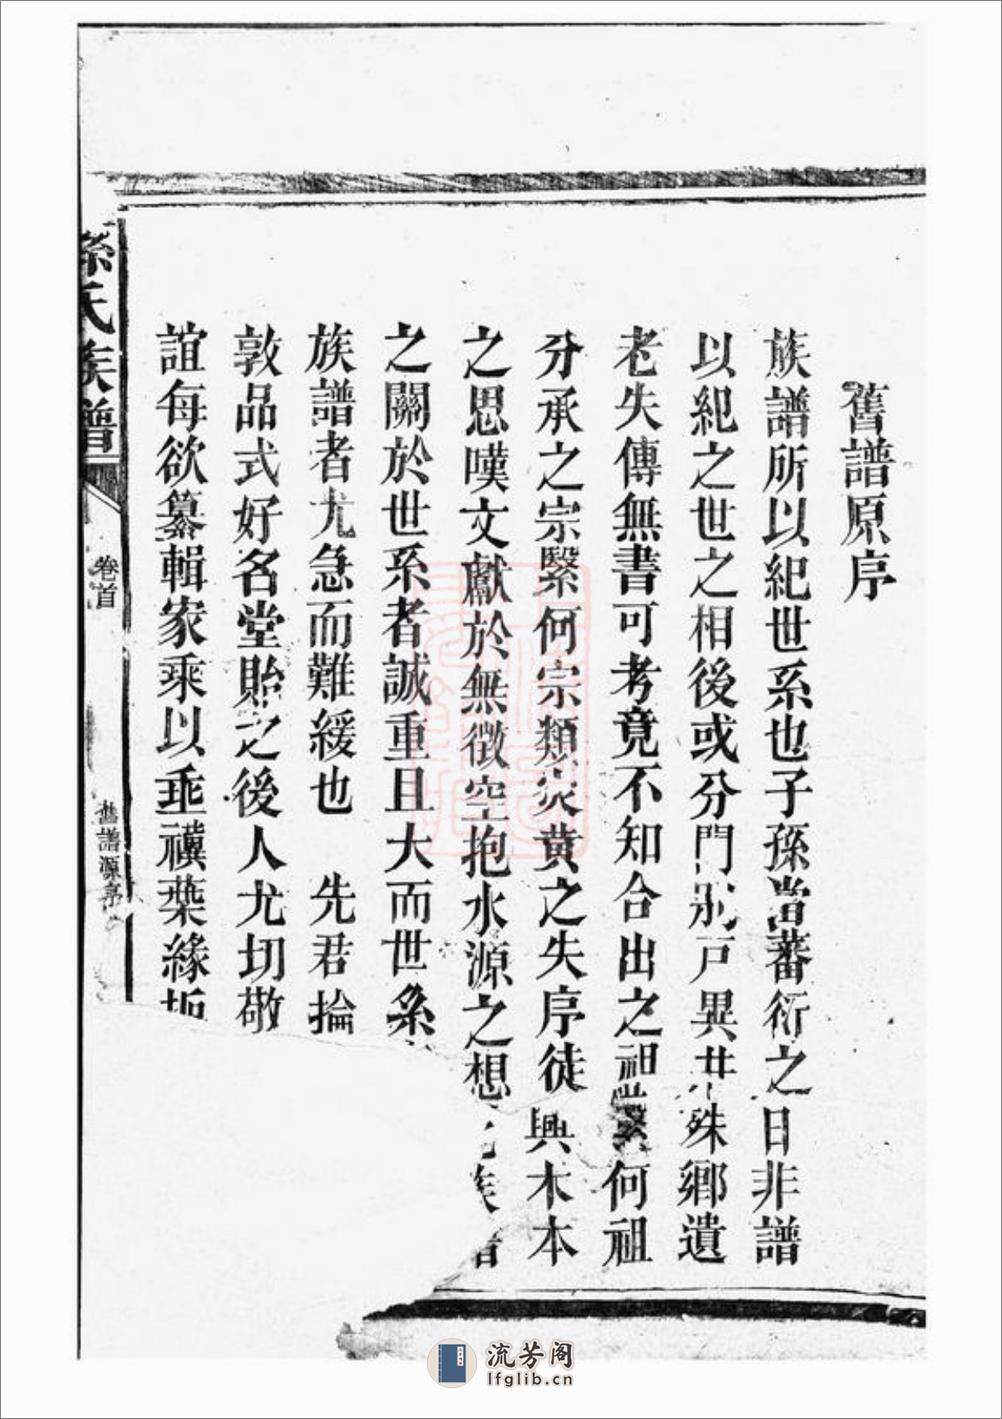 舊譜原序
族譜所以紀世系也子孫當蕃衍之日非譜
以紀之世之相後或分門別戸異井殊鄉遺
老失傳無書可考竟不知合出之祖繫何祖
分承之宗繄何宗類炎黄之失序徒興木本
之思嘆文獻於無徵空抱水源之想
族譜
之關於世系者誠重且大而世系
族譜者尤急而難緩也 先君掄
敦品式好名堂貽之後人尤切敬
誼每欲纂輯家乘以垂禩葉緣
孫氏族譜
卷首
舊譜源序
流芳阁
lfglib.cn